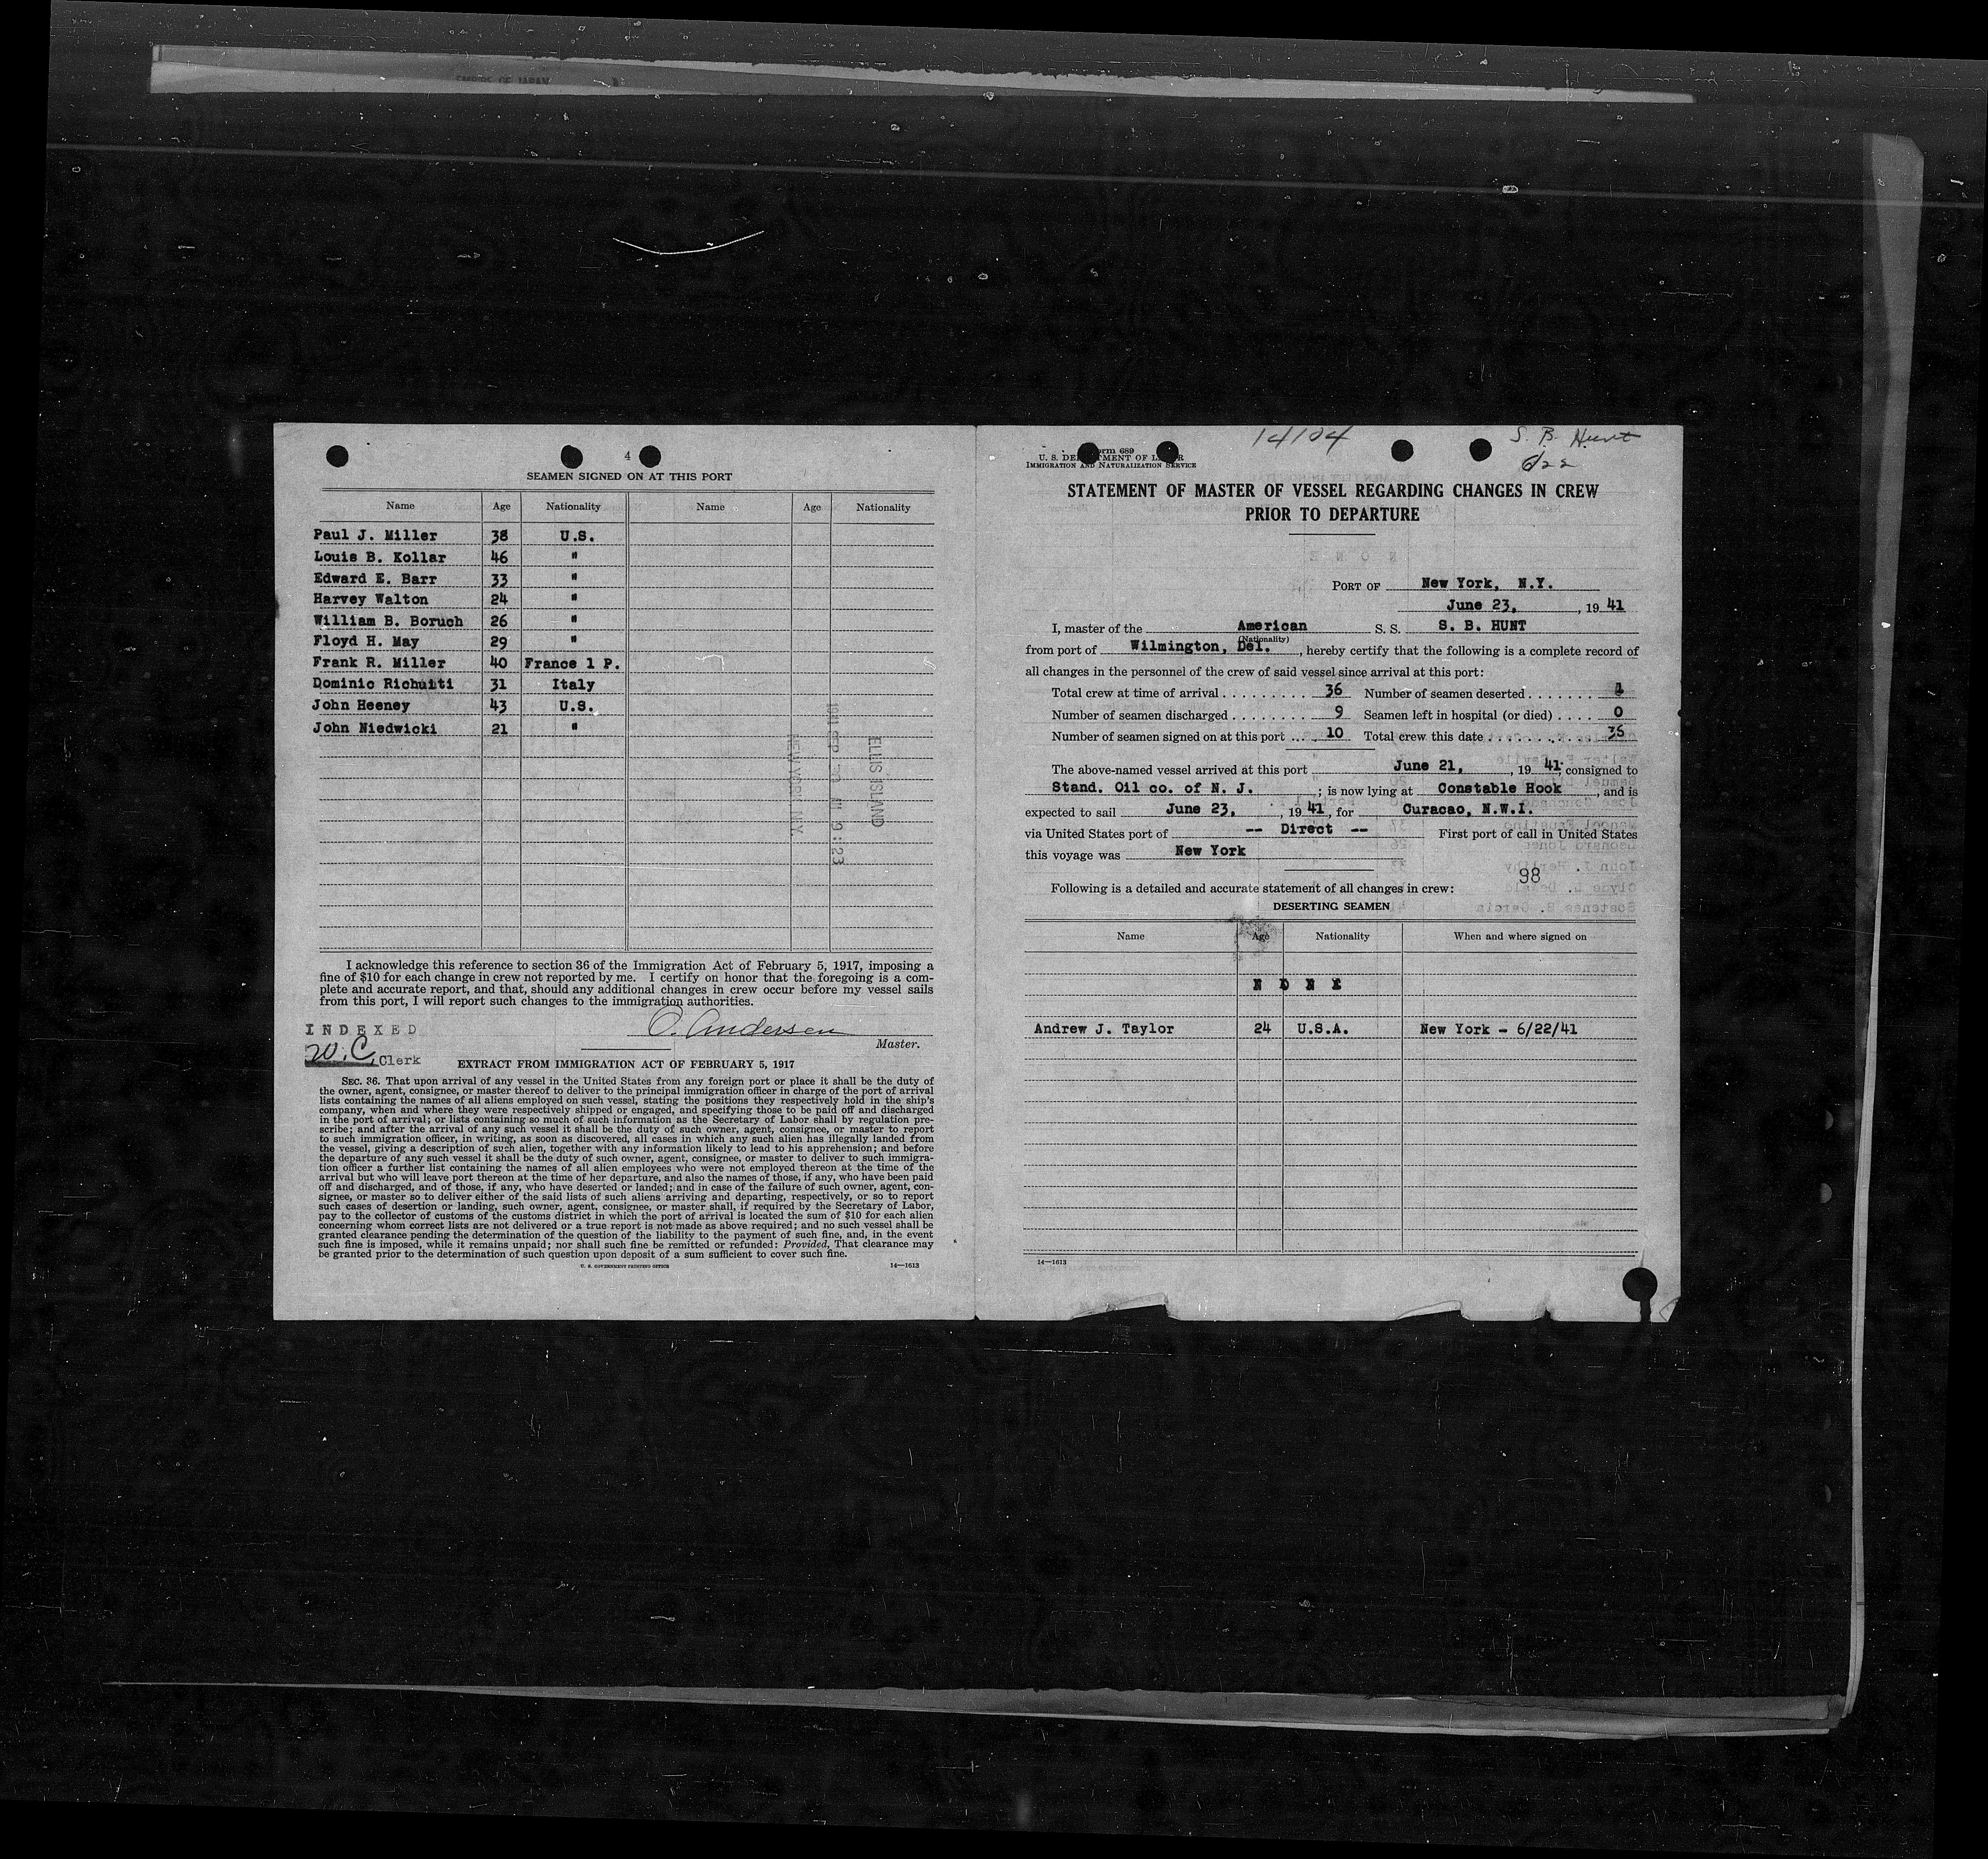 EMPIRE OF JAPAN
4
SEAMEN SIGNED ON AT THIS PORT
Name Age Nationality Name Age Nationality
Paul J. Miller 38 U.S.
Louis B. Kollar 46 "
Edward E. Barr 33 "
Harvey Walton 24 "
William B. Boruch 26 "
Floyd H. May 29 "
Frank R. Miller 40 France 1 P.
Dominic Richuiti 31 Italy
John Heeney 43 U.S.
John Niedwicki 21 "
ELLIS ISLAND
1941 SEP 23 AM 9:23
NEW YORK N.Y.
I acknowledge this reference to section 36 of the Immigration Act of February 5, 1917, imposing a
fine of $10 for each change in crew not reported by me. I certify on honor that the foregoing is a com-
plete and accurate report, and that, should any additional changes in crew occur before my vessel sails
from this port, I will report such changes to the immigration authorities.
INDEXED
O. Andersen
Master.
W.C. Clerk
EXTRACT FROM IMMIGRATION ACT OF FEBRUARY 5, 1917
SEC. 36. That upon arrival of any vessel in the United States from any foreign port or place it shall be the duty of
the owner, agent, consignee, or master thereof to deliver to the principal immigration officer in charge of the port of arrival
lists containing the names of all aliens employed on such vessel, stating the positions they respectively hold in the ship's
company, when and where they were respectively shipped or engaged, and specifying those to be paid off and discharged
in the port of arrival; or lists containing so much of such information as the Secretary of Labor shall by regulation pre-
scribe; and after the arrival of any such vessel it shall be the duty of such owner, agent, consignee, or master to report
to such immigration officer, in writing, as soon as discovered, all cases in which any such alien has illegally landed from
the vessel, giving a description of such alien, together with any information likely to lead to his apprehension; and before
the departure of any such vessel it shall be the duty of such owner, agent, consignee, or master to deliver to such immigra-
tion officer a further list containing the names of all alien employees who were not employed thereon at the time of the
arrival but who will leave port thereon at the time of her departure, and also the names of those, if any, who have been paid
off and discharged, and of those, if any, who have deserted or landed; and in case of the failure of such owner, agent, con-
signee, or master so to deliver either of the said lists of such aliens arriving and departing, respectively, or so to report
such cases of desertion or landing, such owner, agent, consignee, or master shall, if required by the Secretary of Labor,
pay to the collector of customs of the customs district in which the port of arrival is located the sum of $10 for each alien
concerning whom correct lists are not delivered or a true report is not made as above required; and no such vessel shall be
granted clearance pending the determination of the question of the liability to the payment of such fine, and, in the event
such fine is imposed, while it remains unpaid; nor shall such fine be remitted or refunded: Provided, That clearance may
be granted prior to the determination of such question upon deposit of a sum sufficient to cover such fine.
U. S. GOVERNMENT PRINTING OFFICE 14—1613
14104
S. B. Hunt
6/22
Form 689
U. S. DEPARTMENT OF LABOR
IMMIGRATION AND NATURALIZATION SERVICE
STATEMENT OF MASTER OF VESSEL REGARDING CHANGES IN CREW
PRIOR TO DEPARTURE
PORT OF New York, N.Y.
June 23, , 19 41
I, master of the American S. S. S. B. HUNT
(Nationality)
from port of Wilmington, Del. , hereby certify that the following is a complete record of
all changes in the personnel of the crew of said vessel since arrival at this port:
Total crew at time of arrival . . . . . . . . . 36 Number of seamen deserted . . . . . . . 1
Number of seamen discharged . . . . . . . . 9 Seamen left in hospital (or died) . . . . 0
Number of seamen signed on at this port . . . 10 Total crew this date . . . . . . . . . . 36
The above-named vessel arrived at this port June 21, , 19 41, consigned to
Stand. Oil co. of N. J. ; is now lying at Constable Hook , and is
expected to sail June 23, , 19 41, for Curacao, N.W.I.
via United States port of -- Direct -- First port of call in United States
this voyage was New York
98
Following is a detailed and accurate statement of all changes in crew:
DESERTING SEAMEN
Name Age Nationality When and where signed on
N O N E
Andrew J. Taylor 24 U.S.A. New York - 6/22/41
14—1613